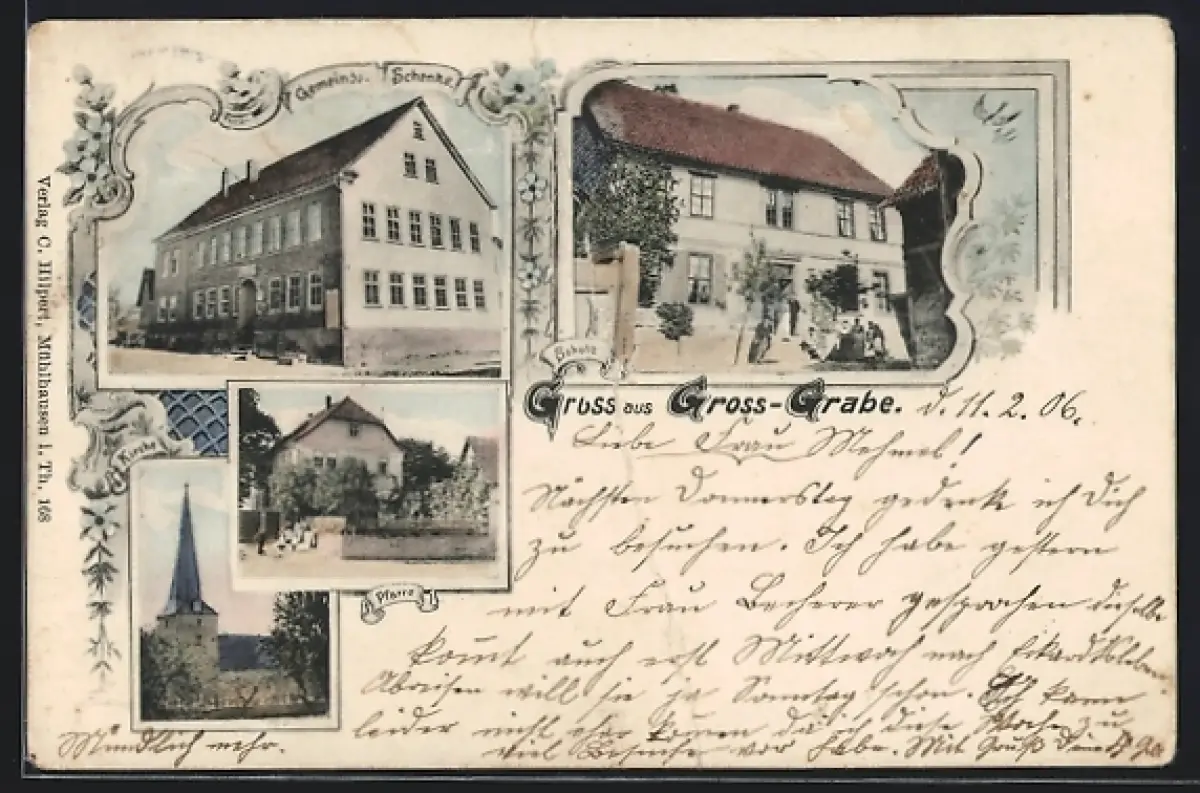 Gemeinde-Schenke
Schule
Gruss aus Gross-Grabe.
d. 11. 2. 06.
Kirche
Pfarre
Verlag C. Hilpert, Mühlhausen i. Th., 168
Liebe Frau Mehmel!
Nächsten Donnerstag gedenk ich Dich
zu besuchen. Ich habe gestern
mit Frau Becherer gesprochen dieselbe
kommt auch erst Mittwoch nach
Abreisen will sie ja Sonntag schon. Ich kann
leider nicht eher kommen da ich diese Woche zu
viel Besuche vor habe. Mit Gruß Deine
Mündlich mehr.